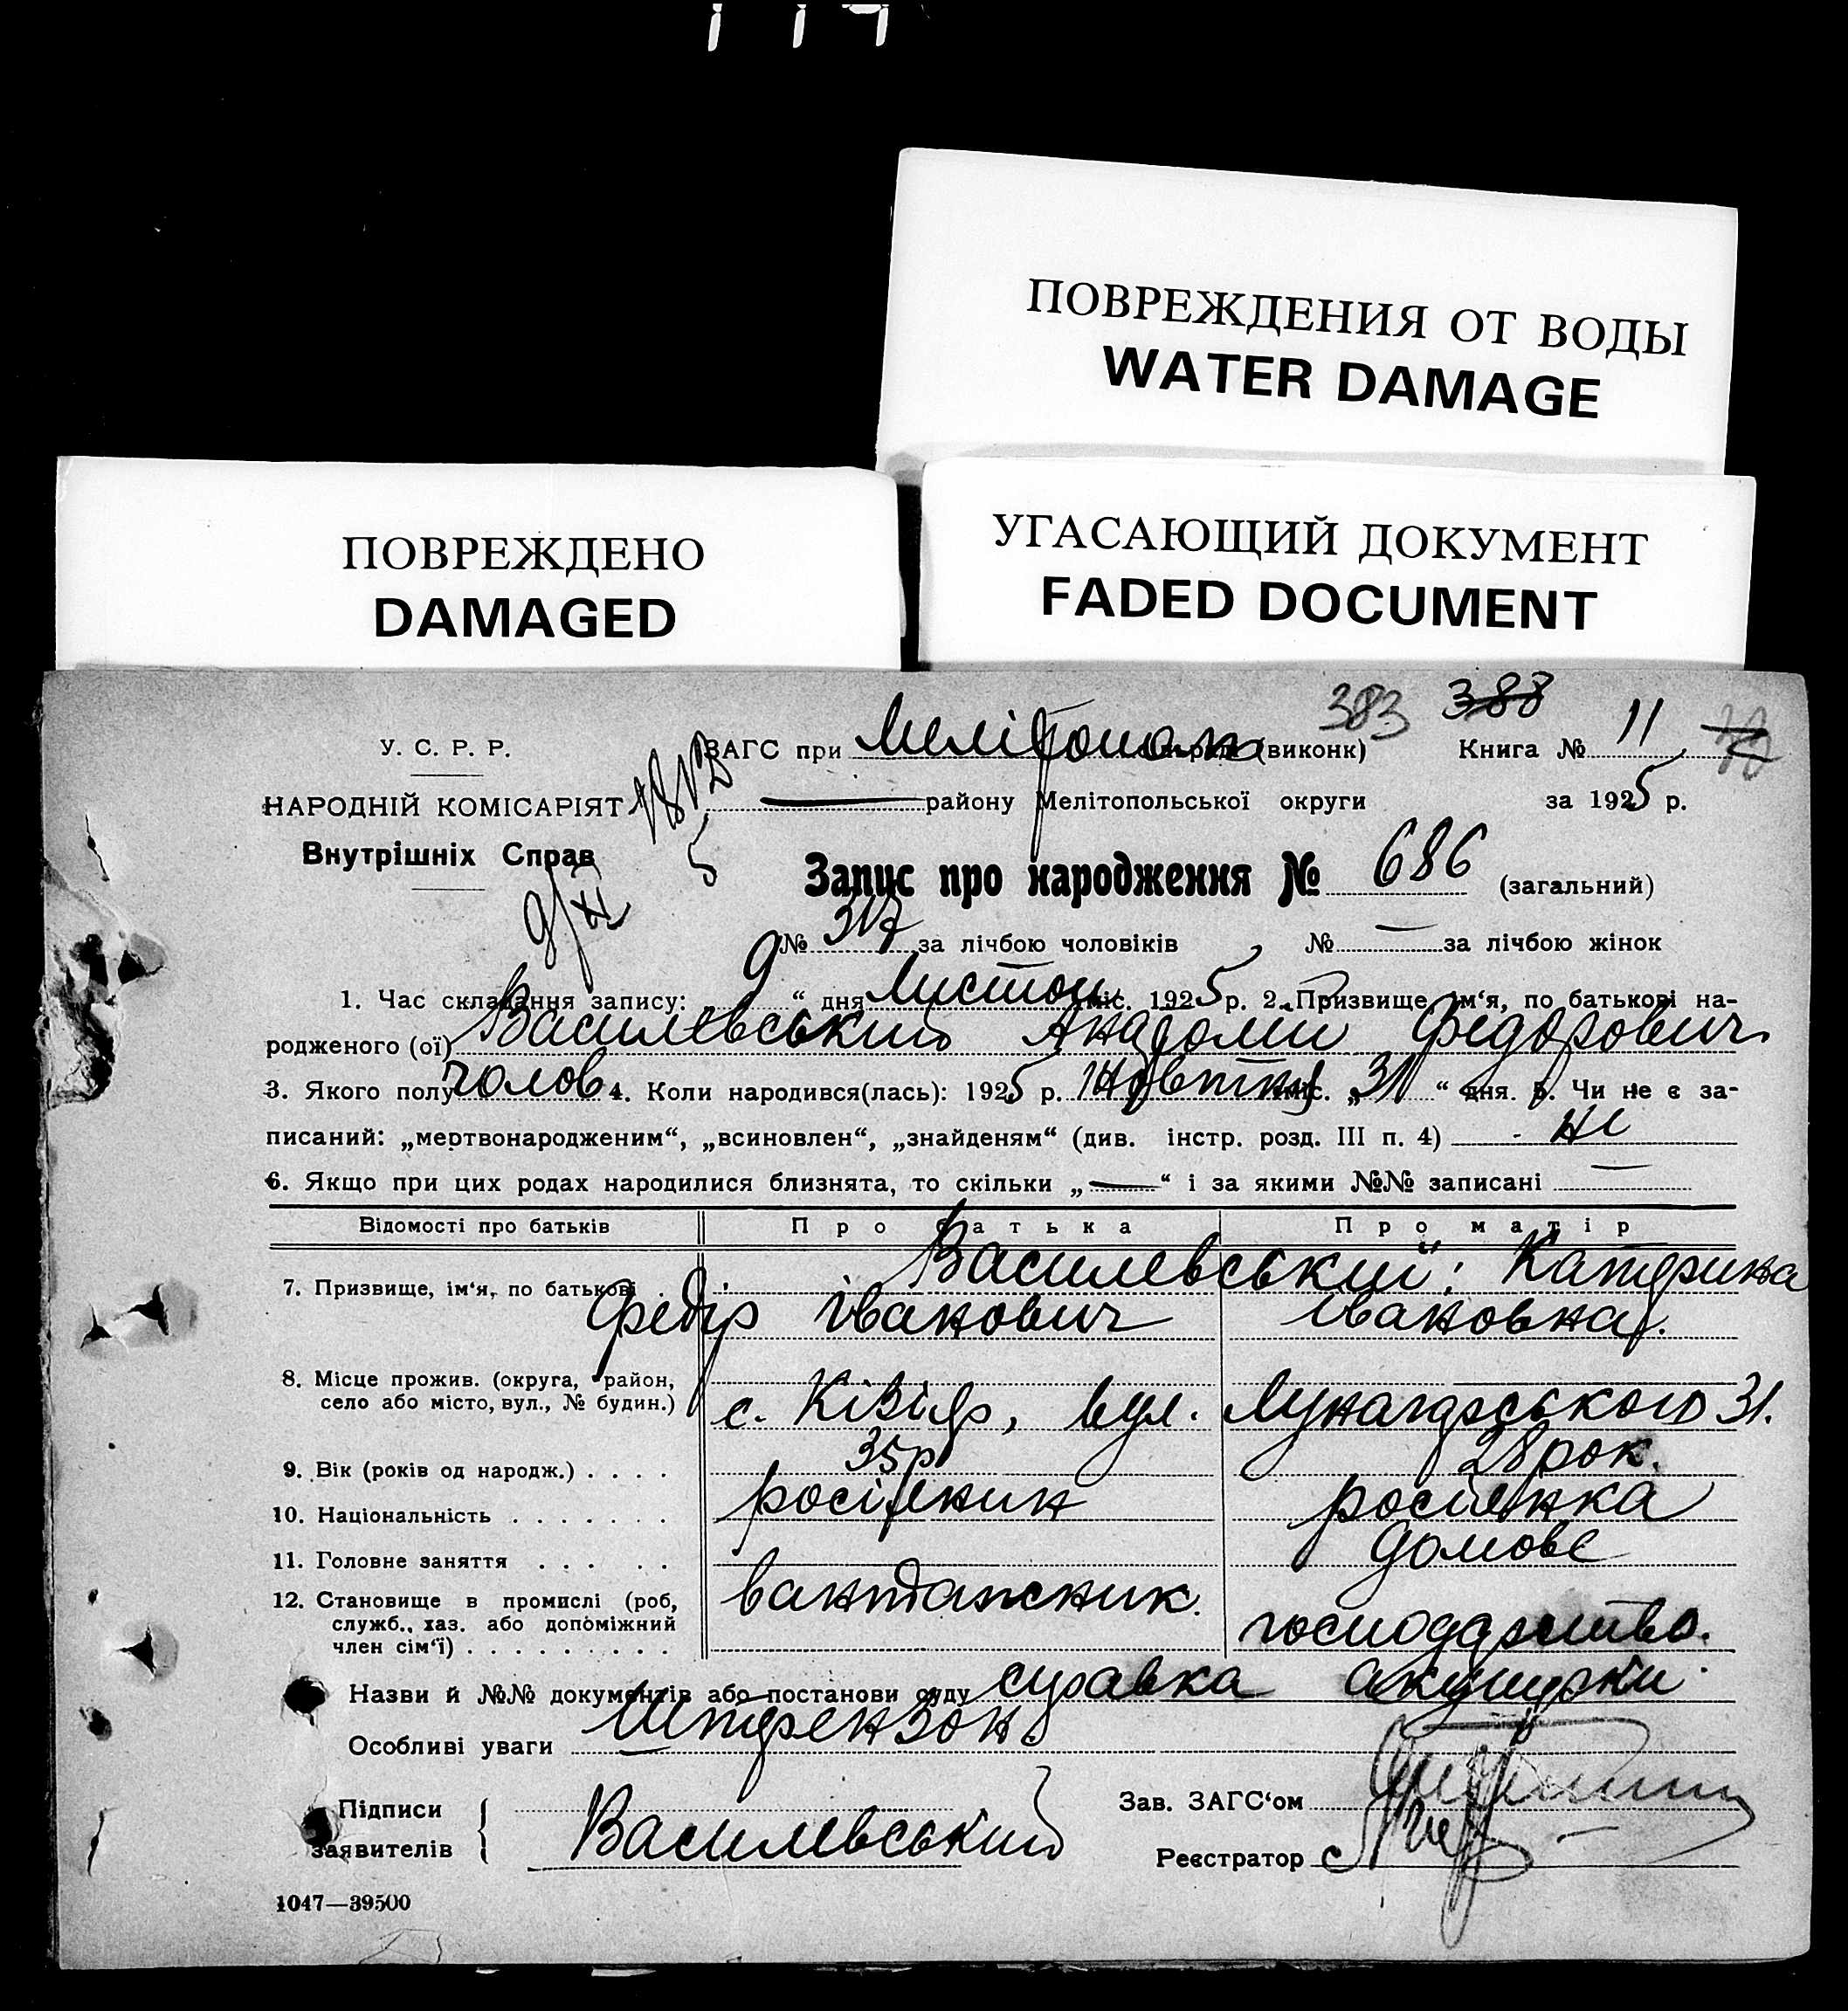 ПОВРЕЖДЕНИЯ ОТ ВОДЫ
WATER DAMAGE
ПОВРЕЖДЕНО
DAMAGED
УГАСАЮЩИЙ ДОКУМЕНТ
FADED DOCUMENT
383 388
У. С. Р. Р. ЗАГС при (виконк) Книга № 11
НАРОДНІЙ КОМІСАРІЯТ району Мелітопольської округи за 1925 р.
Внутрішніх Справ
Запис про народження № 686 (загальний)
№ 317 за лічбою чоловіків, № — за лічбою жінок
1. Час складання запису: 9 “ дня Листоп міс. 1925 р. 2. Призвище ім‘я, по батькові на-
родженого (ої) Василевський Федорович
3. Якого полу чолов 4. Коли народився(лась): 1925 р. Жовтня міс. „ 31 “ дня. 5. Чи не є за-
писаний: „мертвонародженим“, „всиновлен“, „знайденям“ (див. інстр. розд. III п. 4) Ні
6. Якщо при цих родах народилися близнята, то скільки „ — “ і за якими №№ записані —
Відомості про батьків Про батька Про матір
7. Призвище, ім‘я, по батькові . . Василевський: Катерина
Федір Іванович Івановна
8. Місце прожив. (округа, район,
село або місто, вул., № будин.) с. вул. Луначарського 31.
9. Вік (років од народж.) . . . . 35 р 28 рок.
10. Національність . . . . . . . росіянин росіянка
11. Головне заняття . . . . . домове
12. Становище в промислі (роб, вантажник.
служб., хаз. або допоміжний господарство.
член сім‘ї) . . . . . . . . .
Назви й №№ документів або постанови суду справка акушерки
Особливі уваги Штерензон
Підписи Зав. ЗАГС‘ом
заявителів Василевський Реєстратор
1047—39500